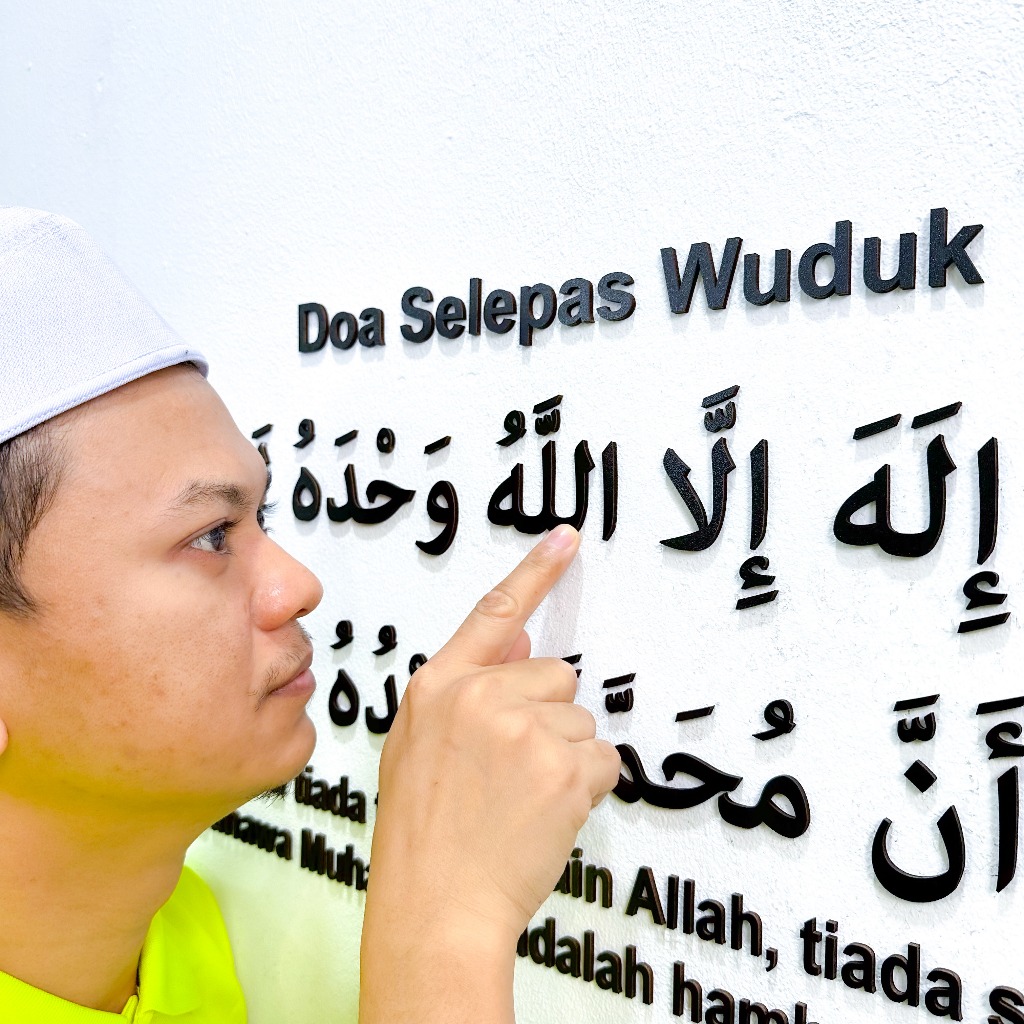 Doa Selepas Wuduk
إِلَهَ إِلَّا اللَّهُ وَحْدَهُ
أَنَّ مُحَمَّ دُهُ
tiada ain Allah, tiada s
Muha dalah hamb